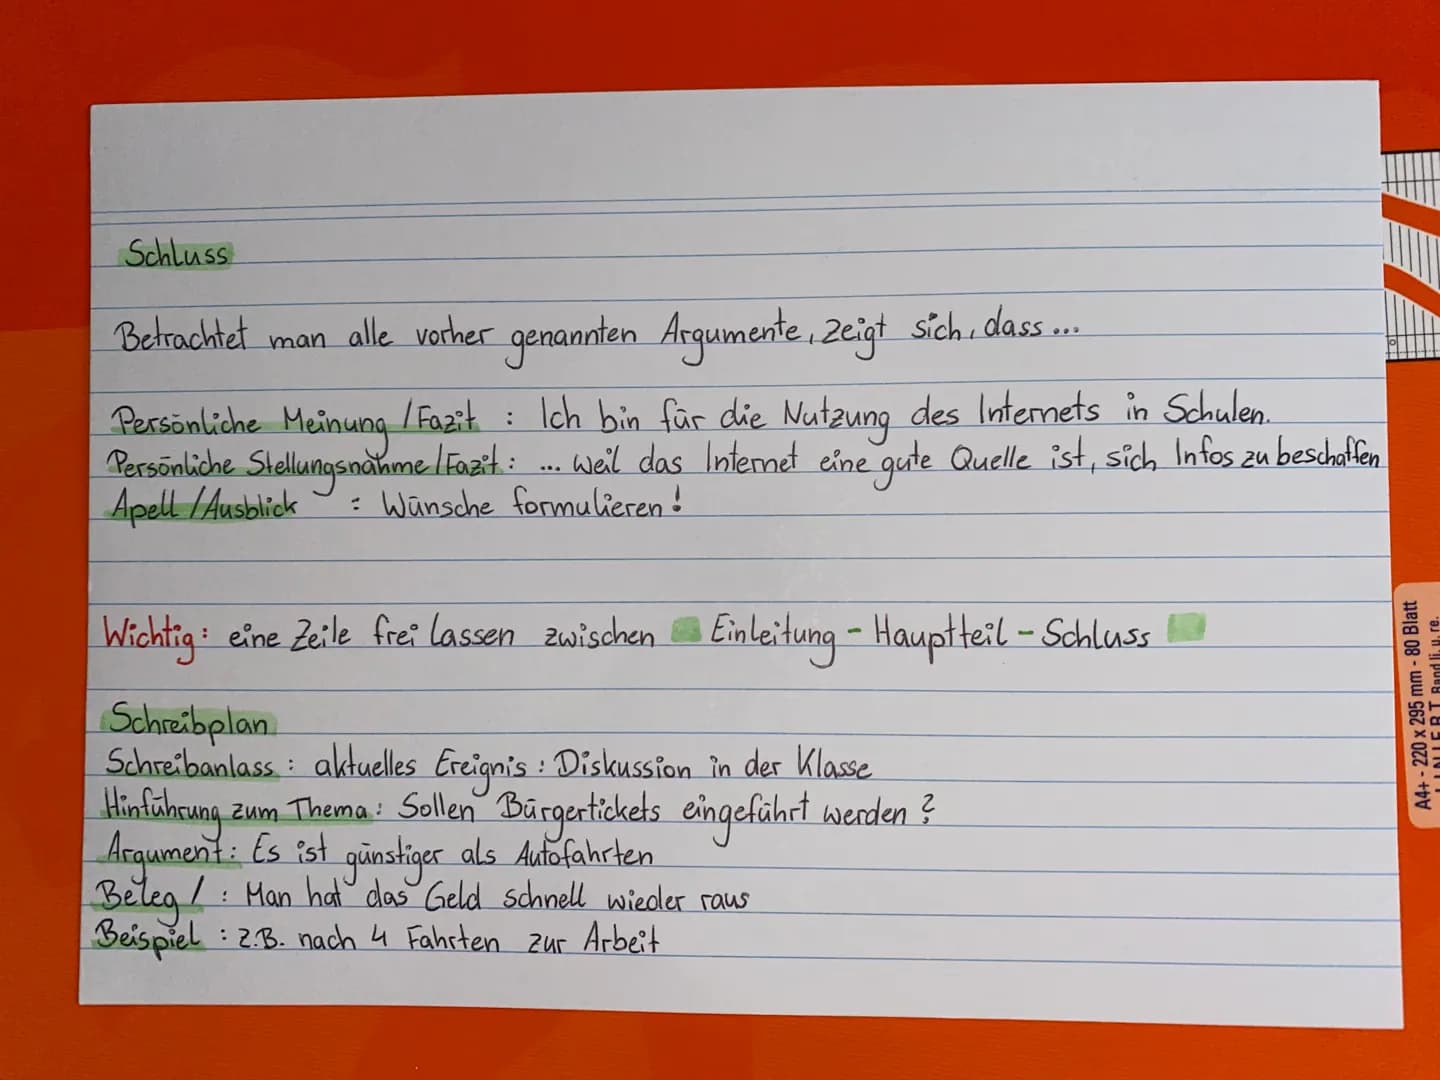 Schluss
Betrachtet man alle vorher genannten Argumente, zeigt sich, dass ...
Persönliche Meinung / Fazit : Ich bin für die Nutzung des Internets in Schulen.
Persönliche Stellungsnahme / Fazit : ... weil das Internet eine gute Quelle ist, sich Infos zu beschaffen
Apell / Ausblick : Wünsche formulieren!
Wichtig: eine Zeile frei lassen zwischen Einleitung - Hauptteil - Schluss
Schreibplan
Schreibanlass : aktuelles Ereignis : Diskussion in der Klasse
Hinführung zum Thema : Sollen Bürgertickets eingeführt werden ?
Argument : Es ist günstiger als Autofahrten
Beleg / : Man hat das Geld schnell wieder raus
Beispiel : z.B. nach 4 Fahrten zur Arbeit
A4+ - 220 x 295 mm - 80 Blatt
LINIERT Rand li. u. re.